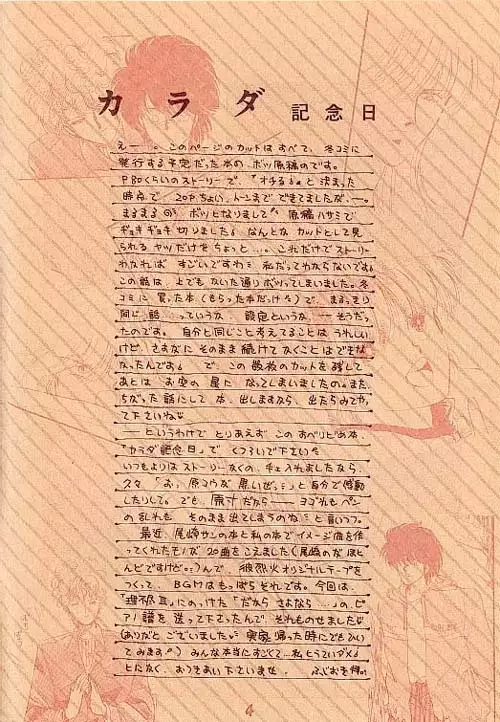 カラダ記念日
えー―。このページのカットはすべて、冬コミに
発行する予定だった本の、ボツ原稿のです。
P80くらいのストーリーで、「オチるる」と決まった
時点で、20Pちょい、トーンまでできてましたが、―。
まるまる ボツになりまして 原稿ハサミで
ギョキギョキ切りました。なんとなくカットとして見
られるヤツだけをちょっと…。これだけでストーリー
わかれば すごいですわ 私だってわからないです
この話は、上でもかいた通りボツってしまいました。冬
コミに買った本(もらった本だっけ)で、まるっきり
同じ話 …っていうか、設定というか、―そうだっ
たのです。自分と同じこと考えてることは うれしい
けど、さすがに そのまま続けてかくことはできな
なったんです で、この数枚のカットを残して
あとは お空の星に なってしまいましたの。また、
ちがった話にして 本、出しますなら、出たらみてやっ
て下さいね♡
―というわけで とりあえず この本、
「カラダ記念日」で くつろいで下さい
いつもよりは ストーリーなくの、チェ入れましたなら、
久々「おっ 原コウが黒いぜ」と自分で感動
したりして。でも、原寸だから――ヨゴれもペン
の乱れも そのまま出てしまうのね と言いつつ。
最近、尾崎サンの本と私の本でイメージ曲を作
ってくれたモノが 20曲をこえました(尾崎のがほと
んどですけど)んで、彼烈火オリジナルテープを
つくって、BGMはもっぱらそれです。今回は、
「理不尽Ⅲ」にのっけた「だからさよなら…」の、ピ
アノ譜を送って下さったんで、それものせました♡
(ありがとございました 実家帰った時にでもひい
てみます)みんな本当にすごくて…私とうていダメ
とにかく、おつきあい下さいませ。
4